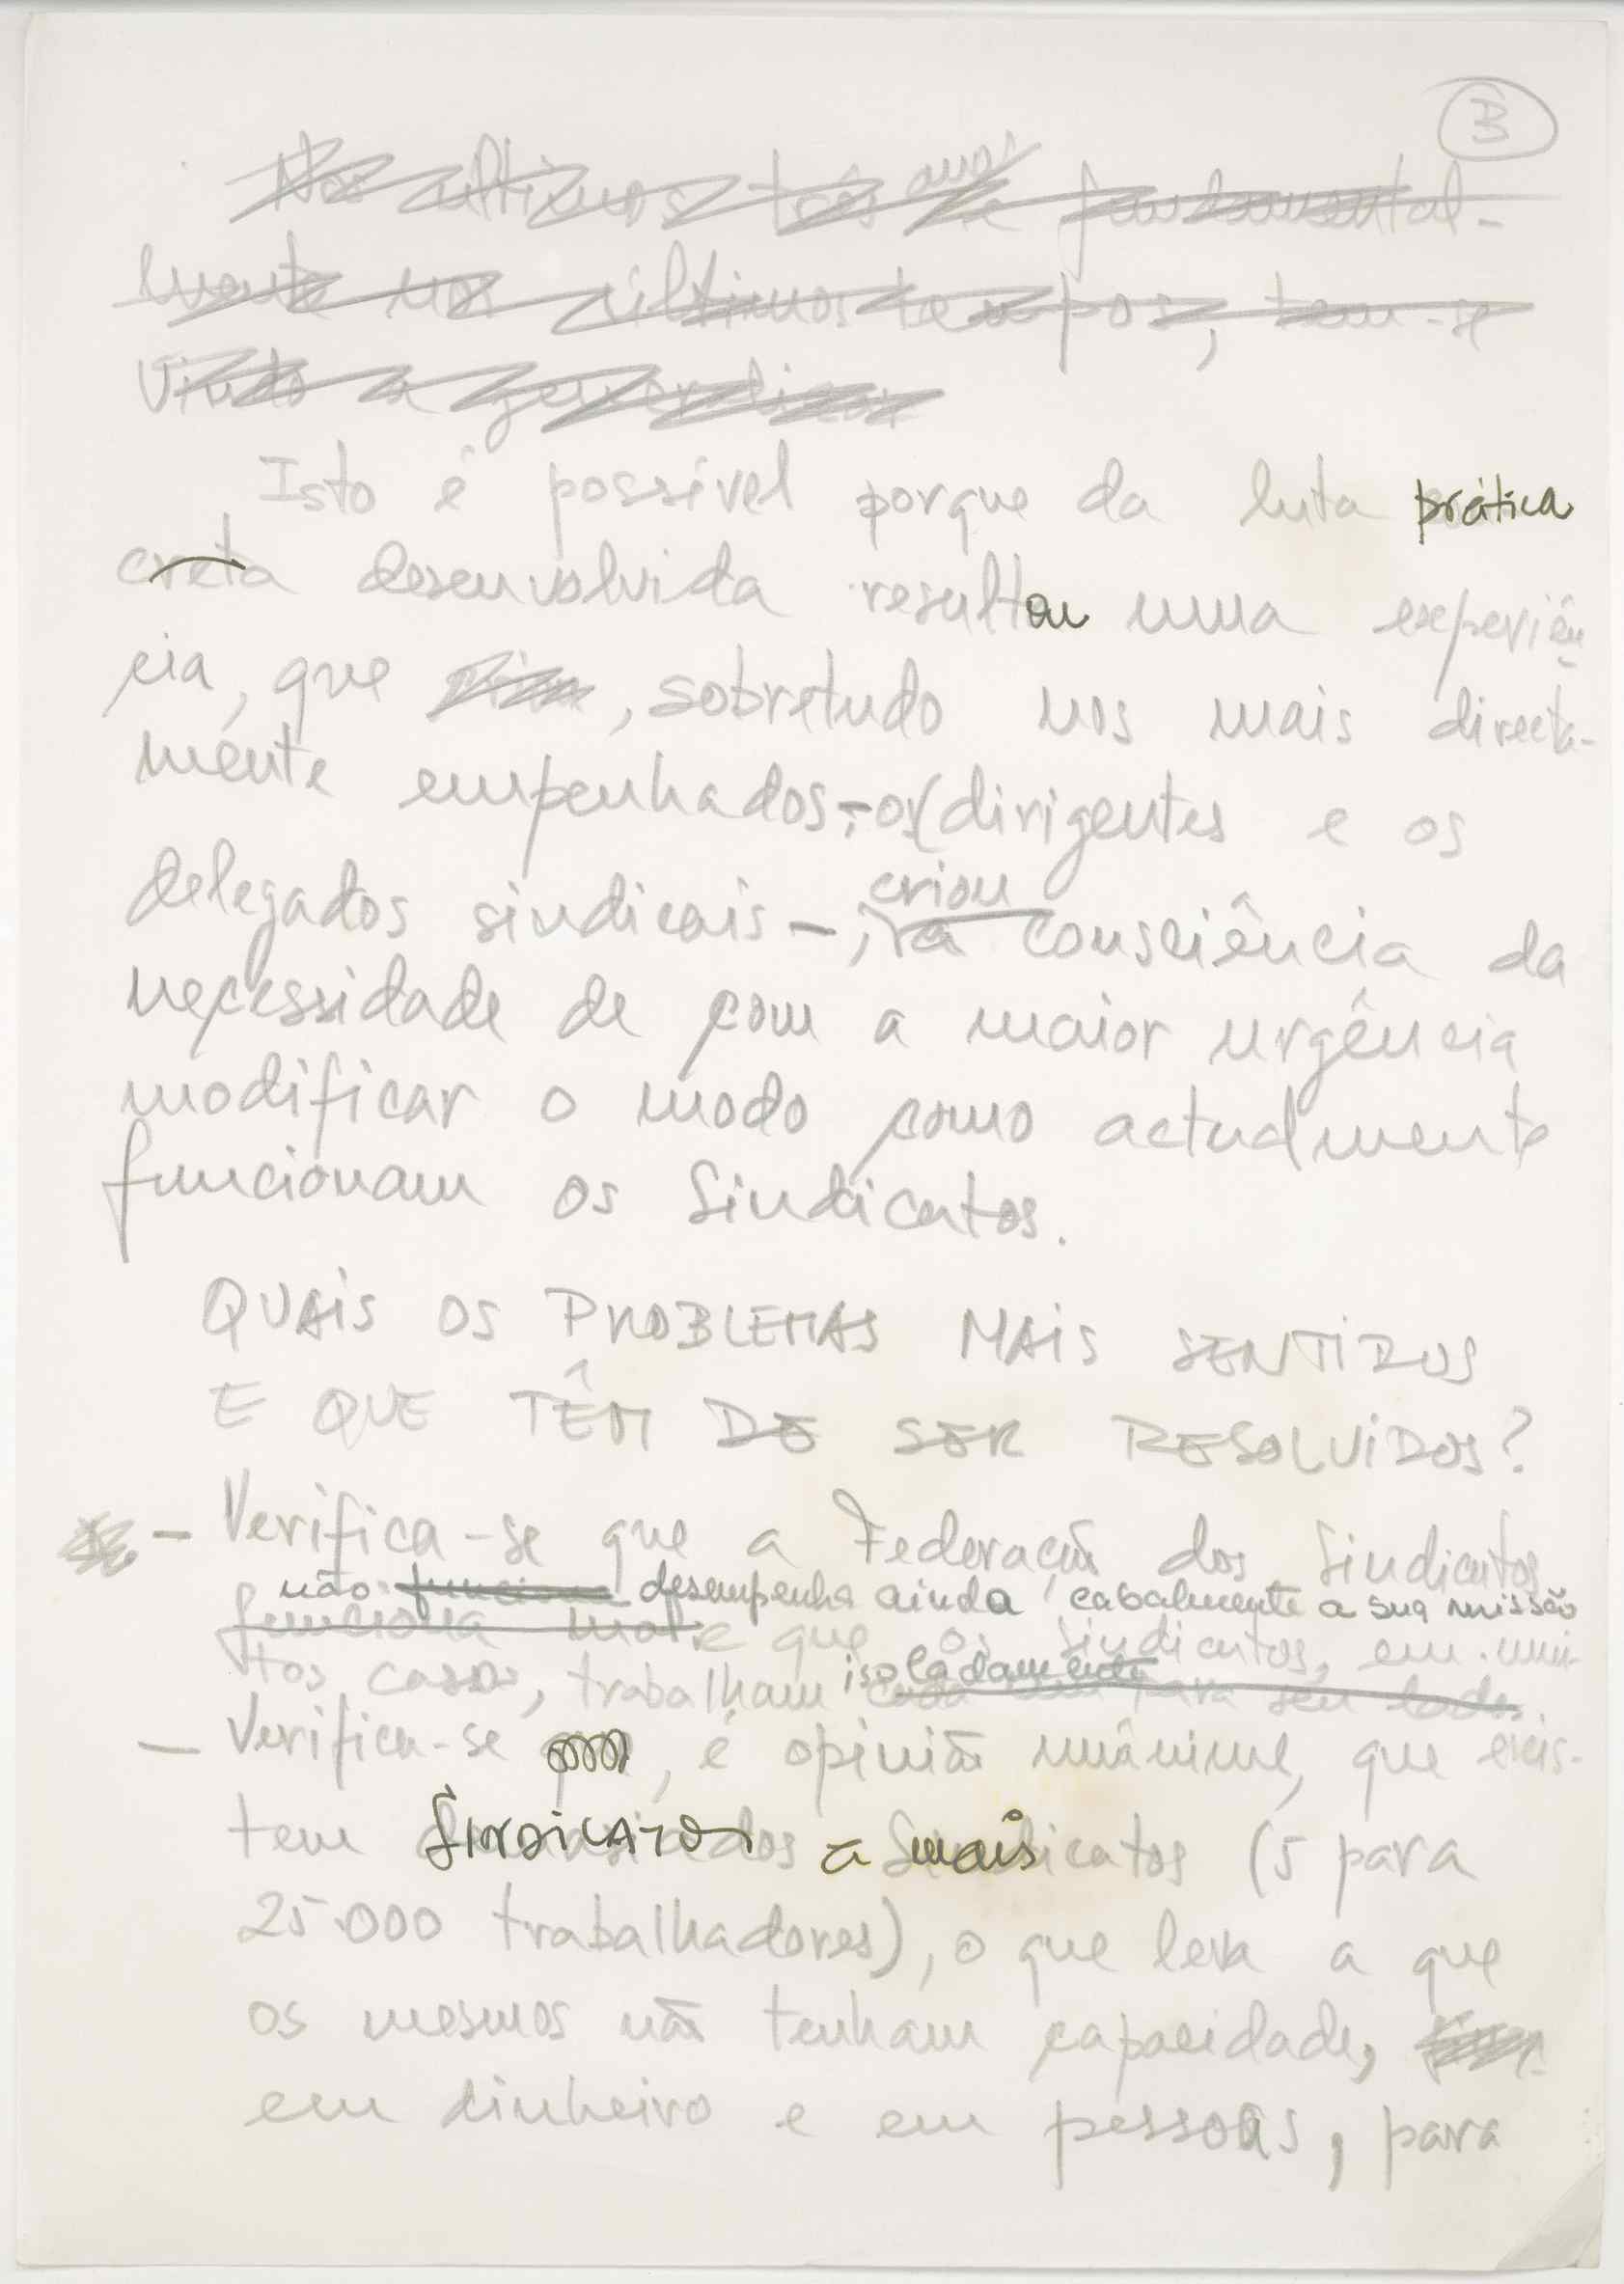 3
Nos últimos três anos e fundamental-
mente nos últimos tempos, tem-se
vindo a generalizar
Isto é possível porque da luta prática
creta desenvolvida resultou uma experiên
cia, que , sobretudo nos mais directa-
mente empenhados, - os dirigentes e os
delegados sindicais -, criou a consciência da
necessidade de com a maior urgência
modificar o modo como actualmente
funcionam os Sindicatos.
QUAIS OS PROBLEMAS MAIS SENTIDOS
E QUE TÊM DE SER RESOLVIDOS?
- Verifica-se que a Federação dos Sindicatos
não funciona desempenha ainda cabalmente a sua missão
funciona mal e que os sindicatos, em mui-
tos casos, trabalham isoladamente cada um para seu lado.
- Verifica-se , é opinião unânime, que exis-
tem SINDICATOS a mais Sindicatos (5 para
25.000 trabalhadores), o que leva a que
os mesmos não tenham capacidade,
em dinheiro e em pessoas, para